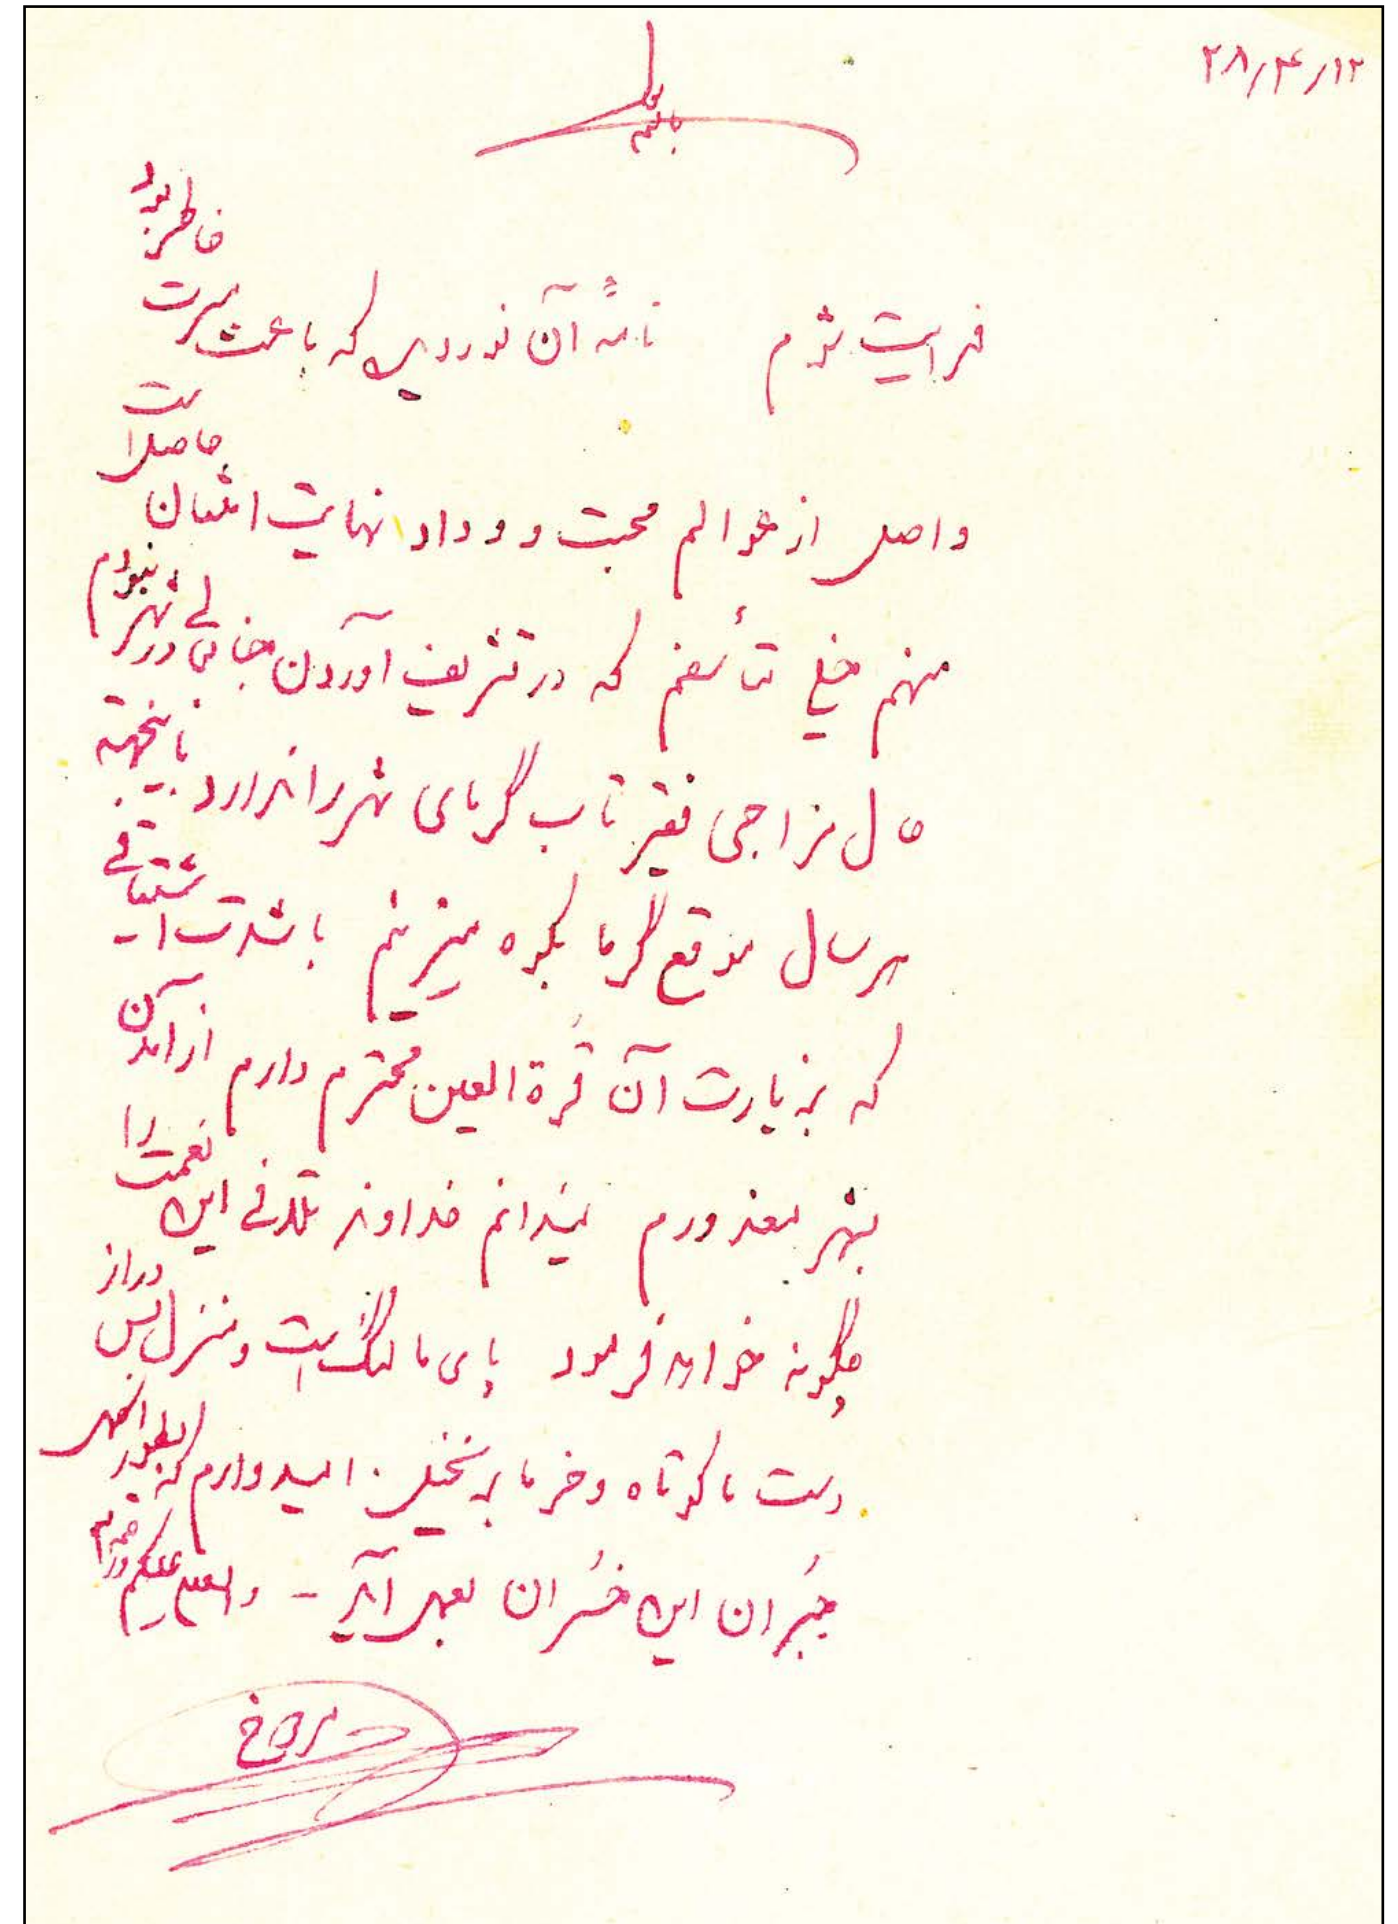 ۲۸/۴/۱۲
بسمه تعالی
فدایت شوم نامهٔ آن نوردیده که باعث مسرت خاطر بود
واصل از عوالم محبت و وداد نهایت امتنان حاصل است
منهم خیلی متأسفم که در تشریف آوردن جنابعالی در شهر نبودم
حال مزاجی فقیر تاب گرمای شهر را ندارد باینجهته
هر سال موقع گرما بکوه میزنیم با شدت اشتیاقی
که بزیارت آن قُرة العین محترم دارم از آمدن
بشهر معذورم نمیدانم خداوند تلافی این نعمت را
چگونه خواهد فرمود پای ما لنگ است و منزل بس دراز
دست ما کوتاه و خرما بر نخیل. امیدوارم که بطور اکمل
جُبران این خُسران بعمل آید - والسلام علیکم و رحمه‌اله
مردوخ